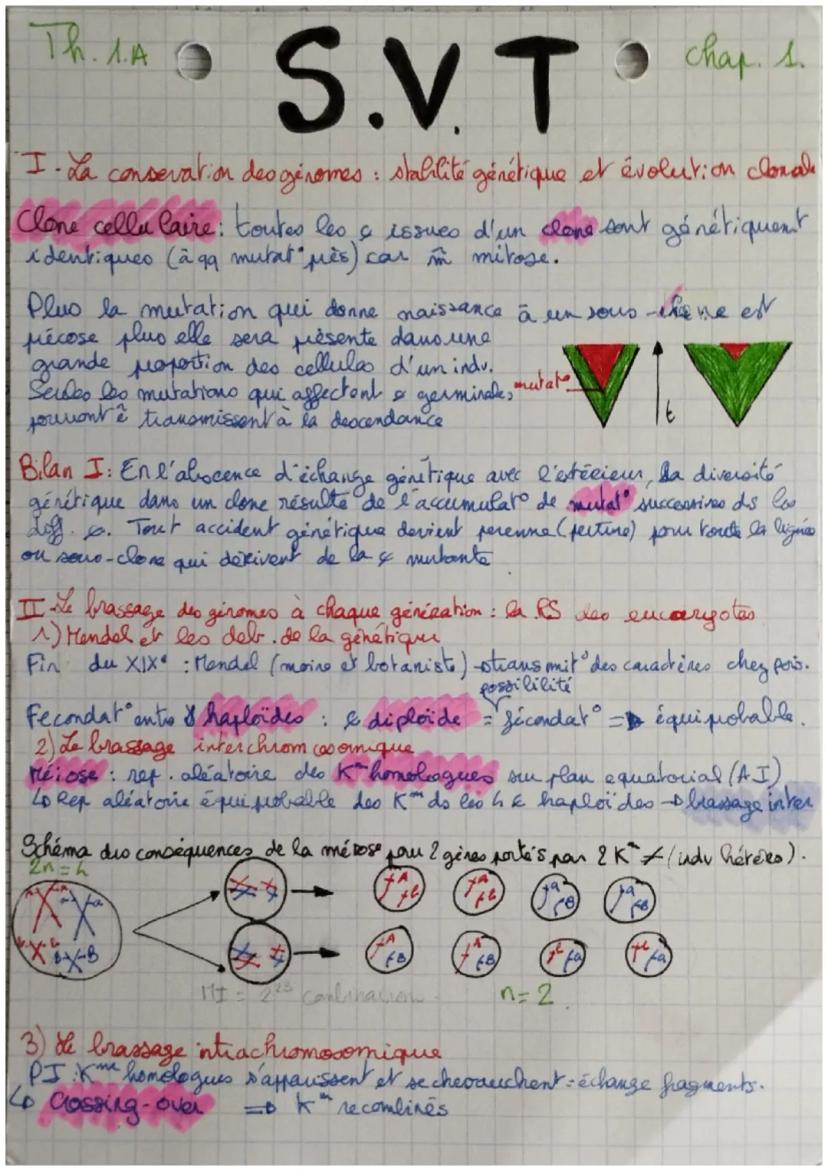 Th. 1.A
S.V.T
chap. 1.
I - La conservation des génomes : stabilité génétique et évolution clonale
Clone cellulaire : toutes les ȼ issues d'un clone sont génétiquent
identiques (à qq mutat° près) car m̂ mitose.
Plus la mutation qui donne naissance à un sous - clone est
précose plus elle sera présente dans une
grande proportion des cellulas d'un indv.
Seules les mutations qui affectent ȼ germinales
pourront ê transmissent à la descendance
mutat°
t
Bilan I : En l'abscence d'échange génétique avec l'extérieur, la diversité
génétique dans un clone résulte de l'accumulat° de mutat° successives ds les
diff. ȼ. Tout accident génétique devient perenne (perturé) pour toute la lignée
ou sous-clone qui dérivent de la ȼ mutante
II - Le brassage des génomes à chaque génération : la RS des eucaryotes
1) Mendel et les deb. de la génétique
Fin du XIXe : Mendel (moine et botaniste) → transmit° des caractères chez pois.
possibilité
Fecondat° entre 2 haploïdes : ȼ diploïde = fécondat° => équiprobable.
2) Le brassage interchromosomique
Méiose : rep. aléatoire des Kme homologues sur plan equatorial (A I)
↳ Rep aléatoire équiprobable des Km ds les 4 ȼ haploïdes → brassage inter
Schéma des conséquences de la méiose pour 2 gènes portés par 2 Km ≠ (indv hétéro).
2n = 4
a a
b b B B
A b A b a B a B
A B A B b a b a
MI = 2^23 combinaison.
n = 2
3) Le brassage intrachromosomique
PI : Kme homologues s'appaussent et se chevauchent = échange fragments.
↳ Crossing-over => Km recombinés